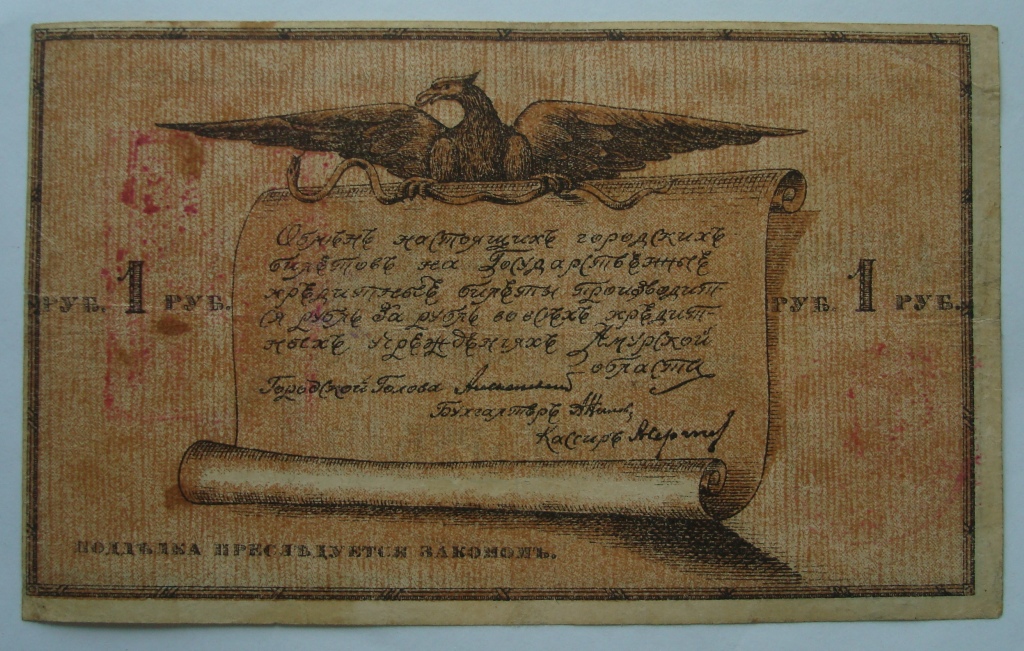 Обмѣнъ настоящихъ городскихъ
билетовъ на Государственные
кредитные билеты производит-
ся рубль за рубль во всѣхъ кредит-
ныхъ учрежденіяхъ Амурской
области
РУБ. 1 РУБ.
РУБ. 1 РУБ.
Городской Голова
Бухгалтеръ
Кассиръ
ПОДДѢЛКА ПРЕСЛѢДУЕТСЯ ЗАКОНОМЪ.